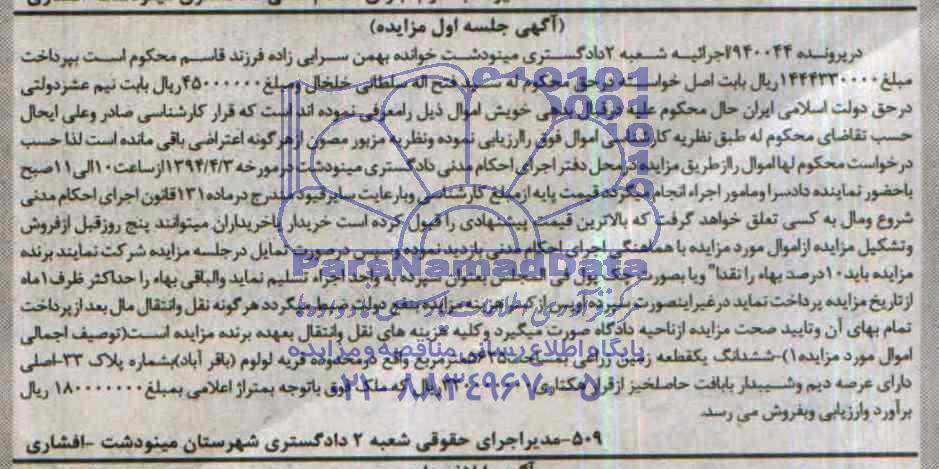 (آگهی جلسه اول مزایده)
درپرونده ۹۴۰۰۴۴اجرائیه شعبه ۲دادگستری مینودشت خوانده بهمن سرایی زاده فرزند قاسم محکوم است بپرداخت
مبلغ۱۴۴۴۳۳۰۰۰۰ریال بابت اصل خواسته درحق محکوم له سید فتح اله سلطانی خلخال ومبلغ۴۵۰۰۰۰۰۰ریال بابت نیم عشردولتی
درحق دولت اسلامی ایران حال محکوم علیه درقبال بدهی خویش اموال ذیل رامعرفی نموده اند است که قرار کارشناسی صادر وعلی ایحال
حسب تقاضای محکوم له طبق نظریه کارشناسی اموال فوق راارزیابی نموده ونظریه مزبور مصون ازهرگونه اعتراضی باقی مانده است لذا حسب
درخواست محکوم لها اموال رااز طریق مزایده درمحل دفتر اجرای احکام مدنی دادگستری مینودشت درمورخه ۱۳۹۴/۴/۳ازساعت۱۰الی۱۱صبح
باحضور نماینده دادسرا ومامور اجراء انجام میگردد قیمت پایه ازمبلغ کارشناسی وبارعایت سایرقیود مندرج درماده۱۳۱قانون اجرای احکام مدنی
شروع ومال به کسی تعلق خواهد گرفت که بالاترین قیمت پیشنهادی را قبول کرده است خریدار یاخریداران میتوانند پنج روزقبل ازفروش
وتشکیل مزایده ازاموال مورد مزایده با هماهنگی اجرای احکام مدنی بازدید نموده وسپس درصورت تمایل درجلسه مزایده شرکت نمایند برنده
مزایده باید۱۰درصد بهاء را نقدا" ویا بصورت چک فی المجلس بعنوان سپرده به واحد اجراء تسلیم نماید والباقی بهاء را حداکثر ظرف۱ماه
ازتاریخ مزایده پرداخت نماید درغیر اینصورت سپرده اوپس ازکسر هزینه مزایده بنفع دولت ضبط میگردد هرگونه نقل وانتقال مال بعد ازپرداخت
تمام بهای آن وتایید صحت مزایده ازناحیه دادگاه صورت میگیرد وکلیه هزینه های نقل وانتقال بعهده برنده مزایده است(توصیف اجمالی
اموال مورد مزایده۱)-ششدانگ یکقطعه زمین زراعی بمساحت۵۶۲۵مترمربع واقع درمحدوده قریه لولوم (باقر آباد)بشماره پلاک ۳۳-اصلی
دارای عرصه دیم وشیبدار بابافت حاصلخیز ازقرار هکتاری ریال که ملک فوق باتوجه بمتراژ اعلامی بمبلغ۱۸۰۰۰۰۰۰۰ ریال
برآورد وارزیابی وبفروش می رسد.
۵۰۹-مدیراجرای حقوقی شعبه ۲ دادگستری شهرستان مینودشت -افشاری
ParsNamadData
پایگاه اطلاع رسانی مناقصه و مزایده
۰۲۱-۸۸۳۴۹۶۷۰-۵